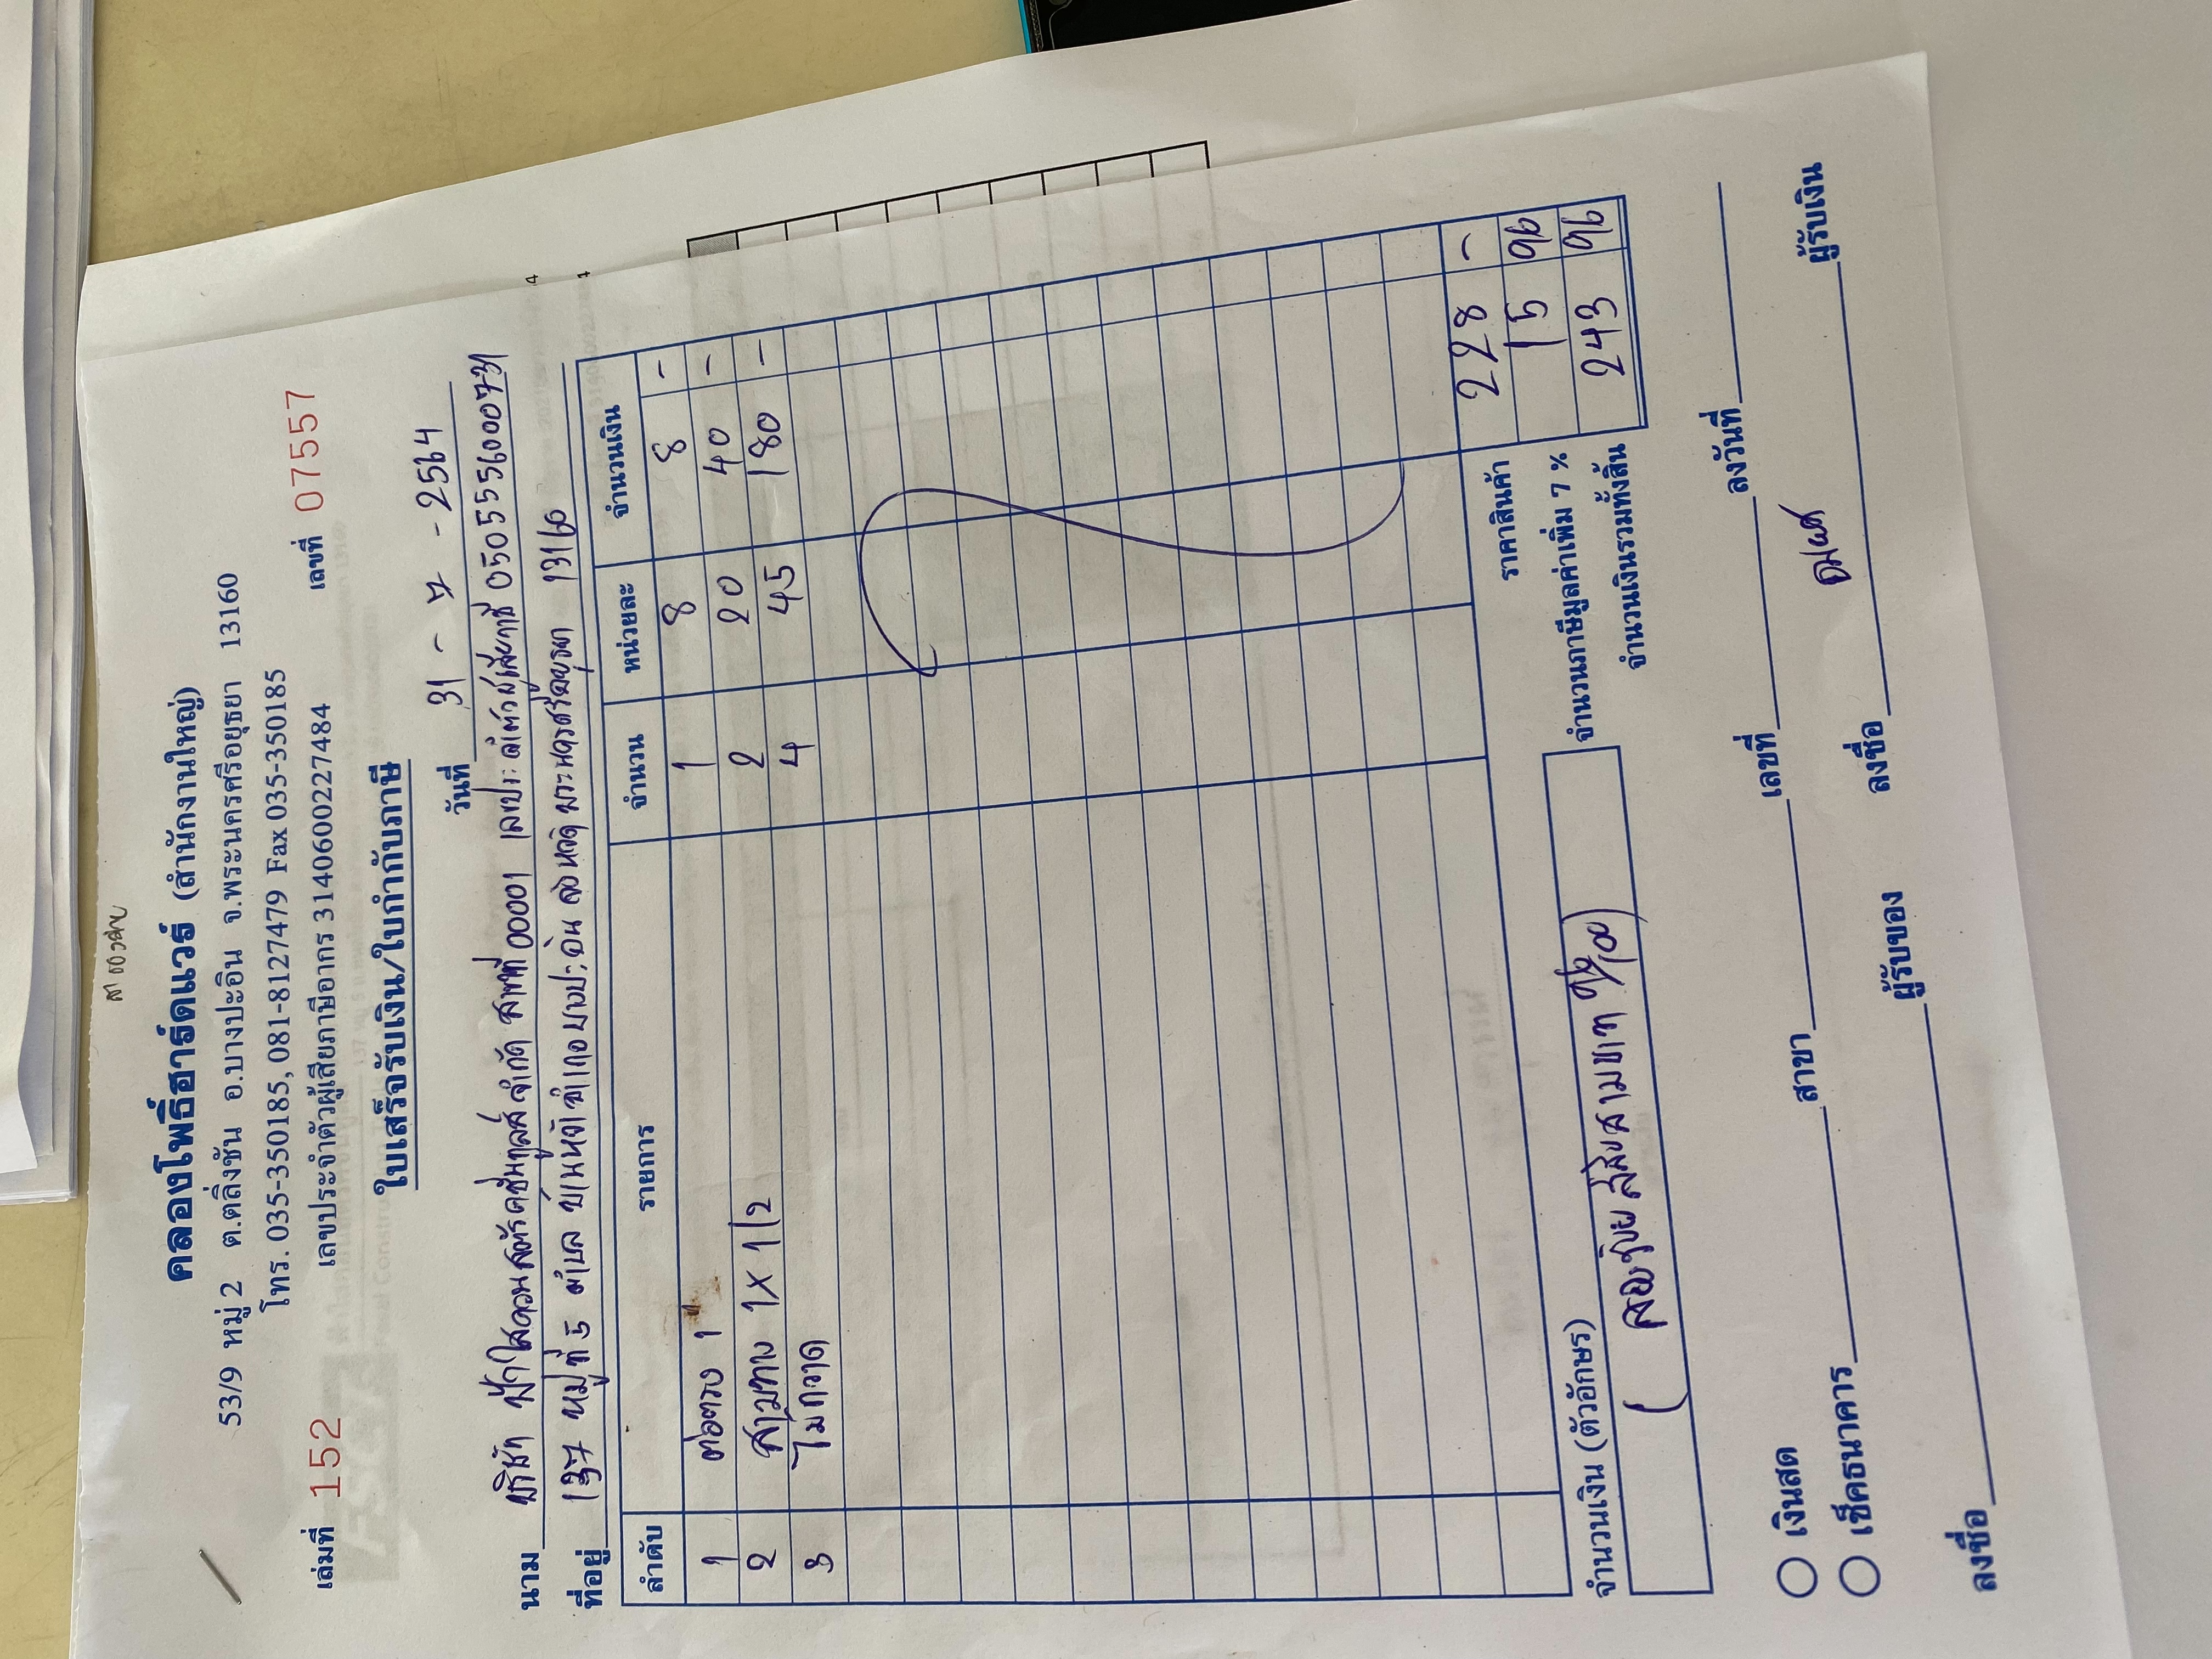 คลองโพธิ์ฮาร์ดแวร์ (สำนักงานใหญ่)
53/9 หมู่ 2 ต.ตลิ่งชัน อ.บางปะอิน จ.พระนครศรีอยุธยา 13160
โทร. 035-350185, 081-8127479 Fax 035-350185
เล่มที่ 152 เลขประจำตัวผู้เสียภาษีอากร 3140600227484 เลขที่ 07557
ใบเสร็จรับเงิน/ใบกำกับภาษี
วันที่ 31 - 7 - 2564
นาม บริษัท ฟ้าใสคอนสตรัคชั่นทูลส์ จำกัด สาขาที่ 00001 เลขประจำตัวผู้เสียภาษี 0505556000731
ที่อยู่ 137 หมู่ที่ 5 ตำบล อำเภอบางปะอิน จังหวัด พระนครศรีอยุธยา 13160
ลำดับ รายการ จำนวน หน่วยละ จำนวนเงิน
1 ต่อตรง 1" 1 8 8 -
2 สามทาง 1 x 1/2 2 20 40 -
3 ไม้กวาด 4 45 180 -
ราคาสินค้า 228 -
จำนวนภาษีมูลค่าเพิ่ม 7 % 15 96
จำนวนเงินรวมทั้งสิ้น 243 96
จำนวนเงิน (ตัวอักษร)
( สองร้อยสี่สิบสามบาท 96/100 )
เงินสด
เช็คธนาคาร สาขา เลขที่ ลงวันที่
ลงชื่อ ผู้รับของ ลงชื่อ ผู้รับเงิน